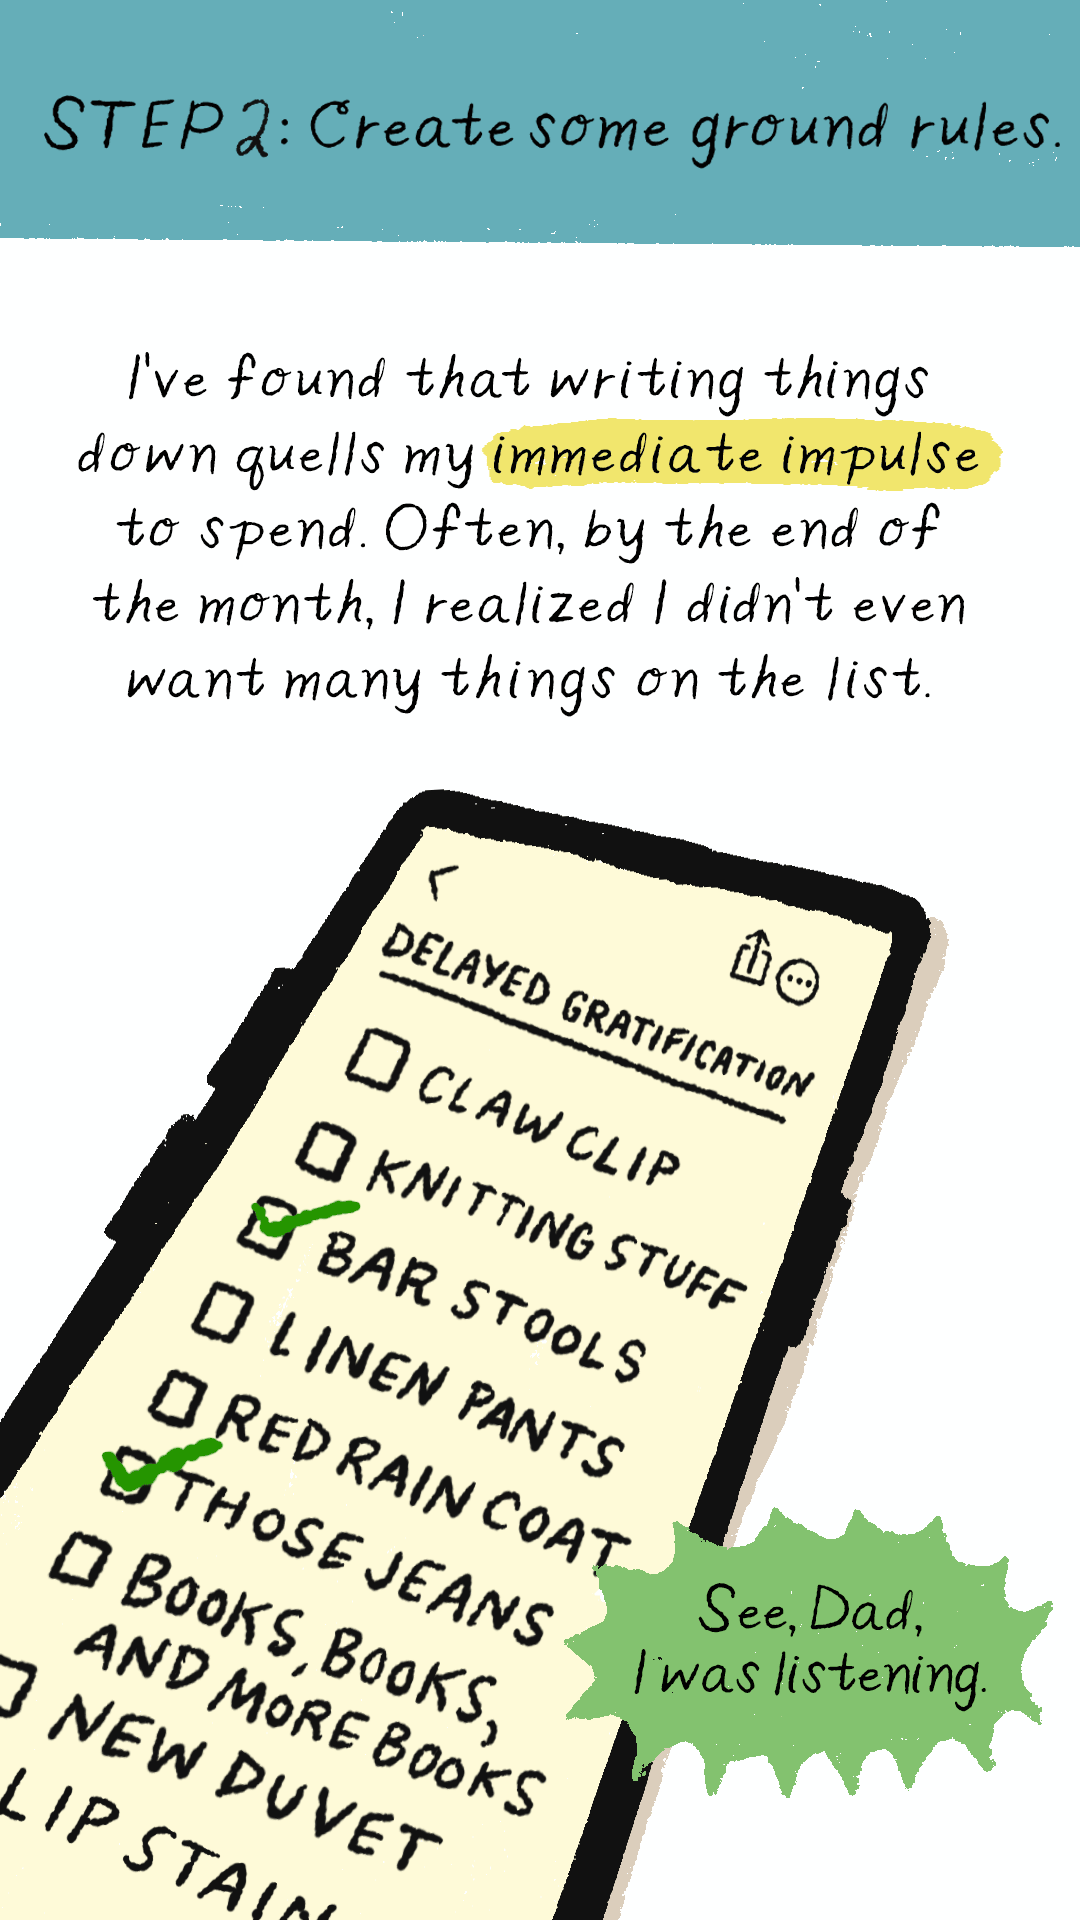 STEP 2: Create some ground rules.
I've found that writing things
down quells my immediate impulse
to spend. Often, by the end of
the month, I realized I didn't even
want many things on the list.
DELAYED GRATIFICATION
CLAW CLIP
KNITTING STUFF
BAR STOOLS
LINEN PANTS
RED RAIN COAT
THOSE JEANS
BOOKS, BOOKS,
AND MORE BOOKS
NEW DUVET
LIP STAIN
See, Dad,
I was listening.